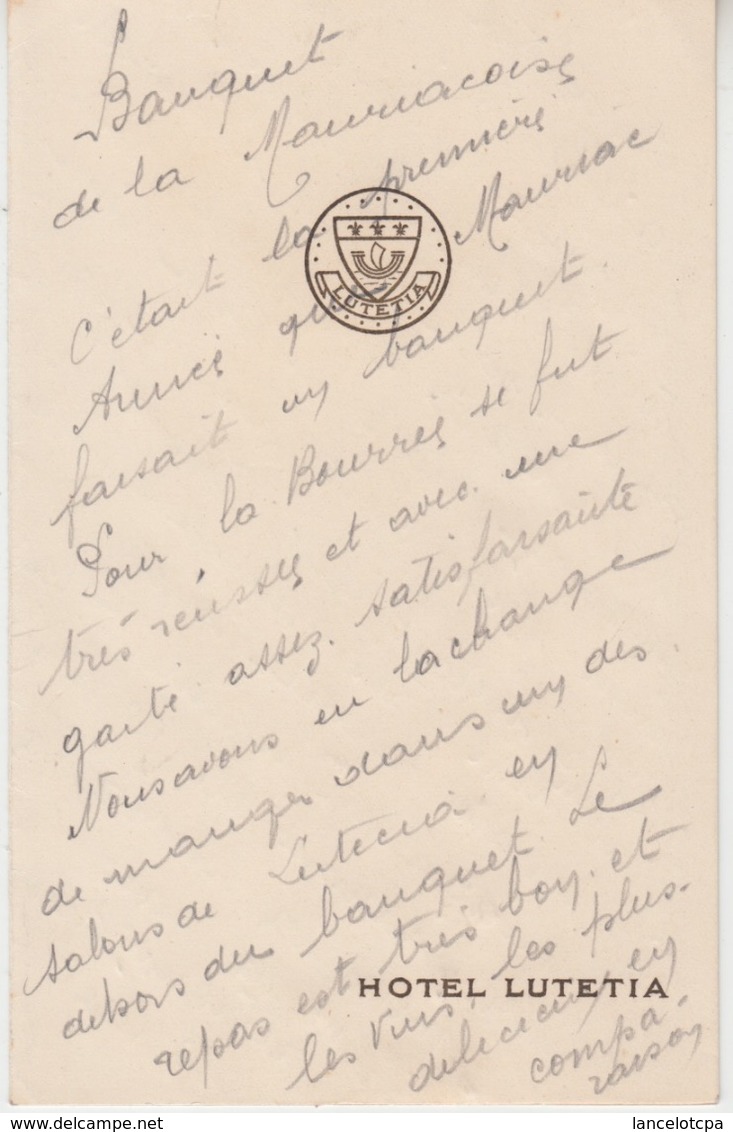 Banquet
de la Mauriacoise
c'était la première
Année que Mauriac
faisait un banquet.
Pour la Bourrée se fut
très réussie et avec une
gaité assez satisfaisante
Nous avons eu la change
de manger dans un des
salons de Lutecia en
dehors du banquet. Le
repas est très bon et
les vins, les plus
delicieux en
compa-
raison
LUTETIA
HOTEL LUTETIA
lancelotcpa